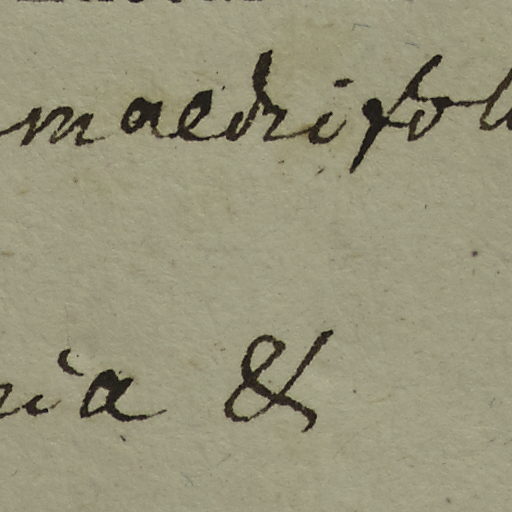 maedrifol
ria &